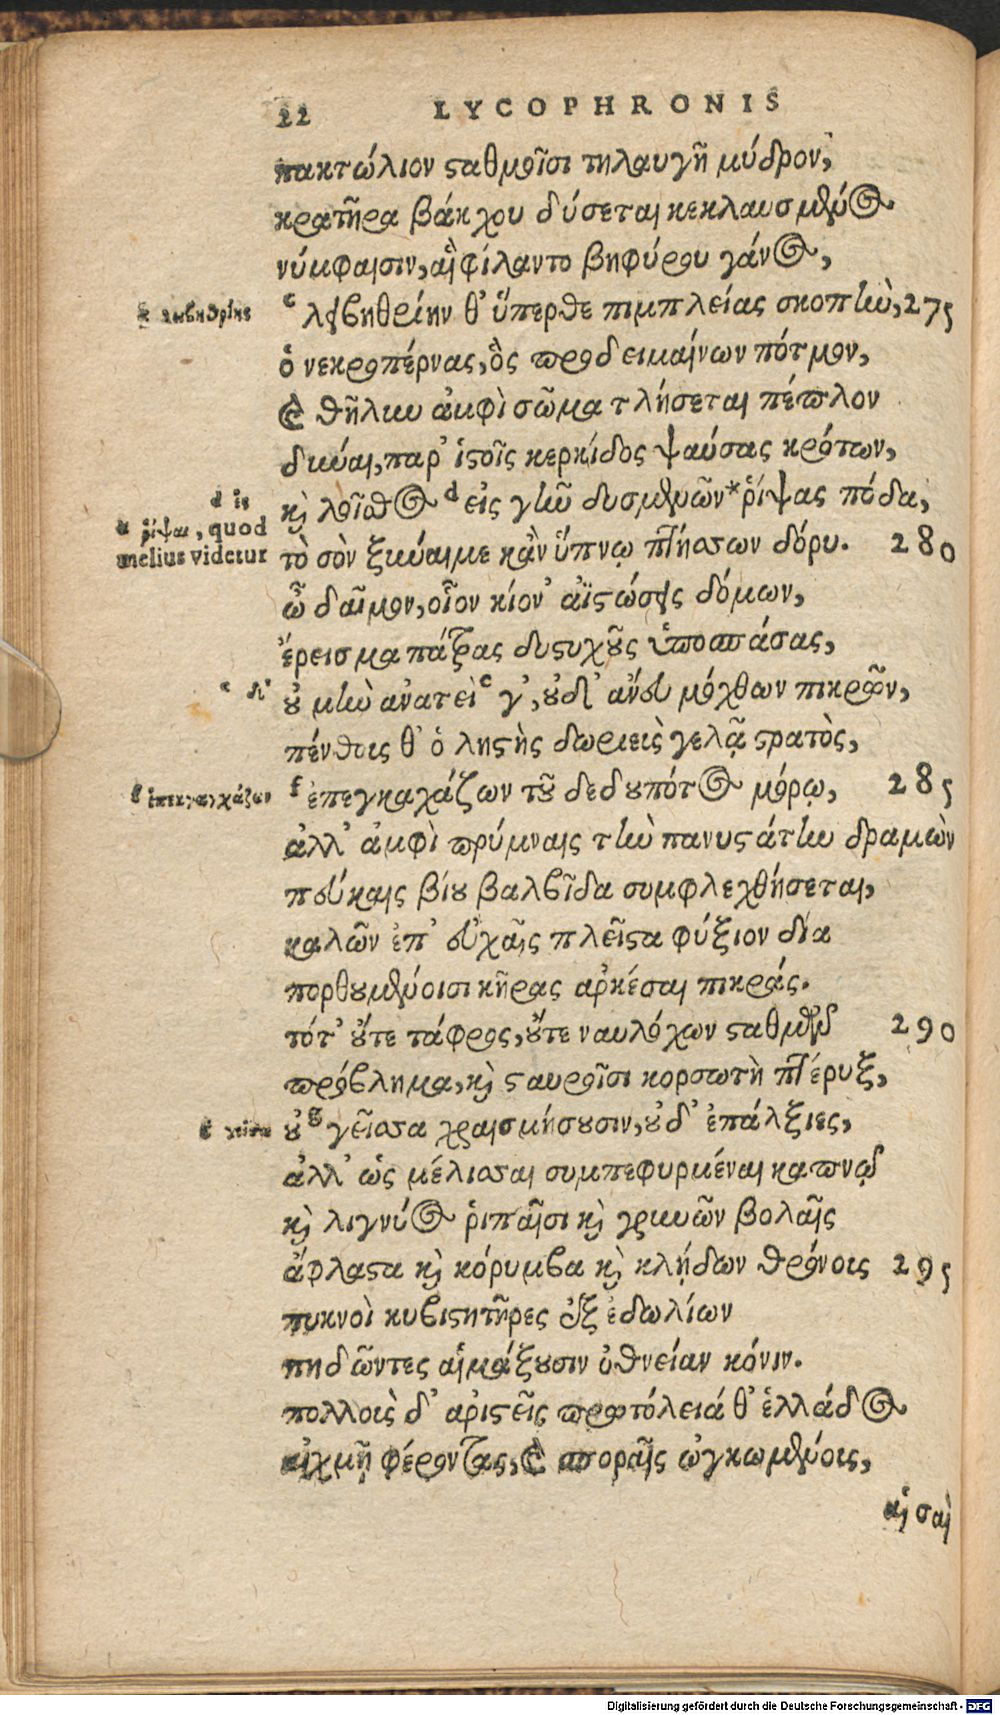 22 LYCOPHRONIS
πακτώλιον σταθμοῖσι τηλαυγῆ μύδρον,
κρατῆρα βάκχου δύσεται κεκλαυσμένος
νύμφαισιν, αἳ φίλαντο βηφύρου γάνος,
ᶜ λειβηθρίην θ' ὕπερθε πιμπλείας σκοπὴν, 275
ὁ νεκροπέρνας, ὃς προδειμαίνων πότμον,
καὶ θῆλυν ἀμφὶ σῶμα τλήσεται πέπλον
δῦναι, παρ' ἱστοῖς κερκίδος ψαύσας κρότων,
d εἰς
καὶ λοῖσθος ᵈ εἰς γῆν δυσμενῶν * ῥίψας πόδα,
* ῥίψαι, quod
melius videtur
τὸ σὸν ξύναιμε κἂν ὕπνῳ πτήσσων δόρυ. 280
ὦ δαῖμον, οἷον κίον' ἀϊστώσεις δόμων,
ἔρεισμα πάτρας δυστυχοῦς ὑποσπάσας,
e δ'
οὐ μὴν ἀνατεὶ ᵉ γ', οὐδ' ἄνευ μόχθων πικρῶν,
πένθοις θ' ὁ λῃστὴς δωριεὺς γελᾷ στρατὸς,
f ἐπεγκαγχάζων
ᶠ ἐπεγκαχάζων τοῦ δεδουπότος μόρῳ, 285
ἀλλ' ἀμφὶ πρύμναις τὴν πανυστάτην δραμὼν
πεύκαις βίου βαλβῖδα συμφλεχθήσεται,
καλῶν ἐπ' εὐχαῖς πλεῖστα φύξιον δία
πορθουμένοισι κῆρας ἀρκέσαι πικράς.
τότ' οὔτε τάφρος, οὔτε ναυλόχων σταθμῶν 290
πρόβλημα, καὶ σταυροῖσι κορσωτὴ πτέρυξ,
οὐ ᵍ γεῖσσα χραισμήσουσιν, οὐδ' ἐπάλξιες,
ἀλλ' ὡς μέλισσαι συμπεφυρμέναι καπνῷ
καὶ λιγνύος ῥιπαῖσι καὶ γρυνῶν βολαῖς
ἄφλαστα καὶ κόρυμβα καὶ κλῄδων θρόνοις 295
πυκνοὶ κυβιστητῆρες ἐξ ἐδωλίων
πηδῶντες αἱμάξουσιν ὀθνείαν κόνιν.
πολλοὺς δ' ἀριστεῖς πρωτόλειά θ' ἑλλάδος
αἰχμῇ φέροντας, καὶ σποραῖς ὠγκωμένοις,
αἱ σαὶ
Digitalisierung gefördert durch die Deutsche Forschungsgemeinschaft - DFG